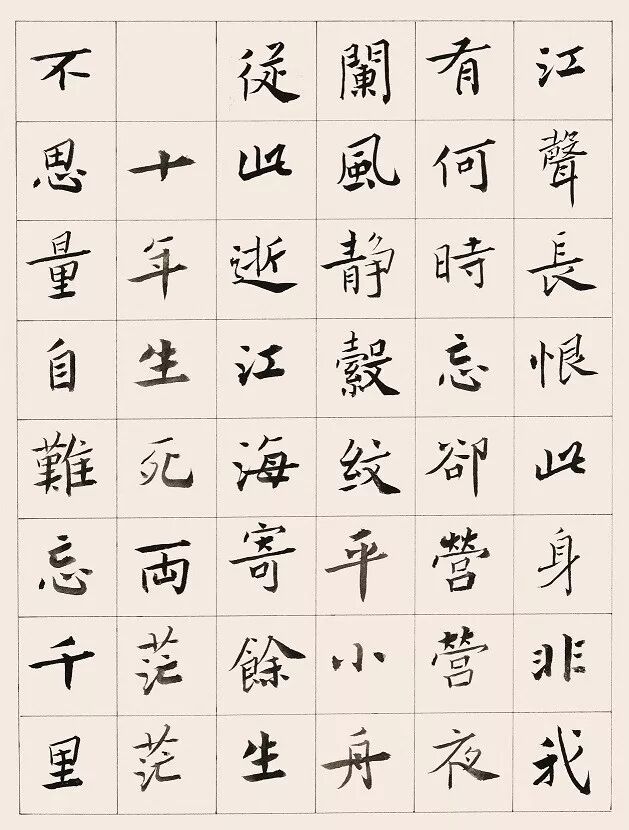 江聲長恨此身非我
有何時忘卻營營夜
闌風静縠紋平小舟
從此逝江海寄餘生
十年生死両茫茫
不思量自難忘千里